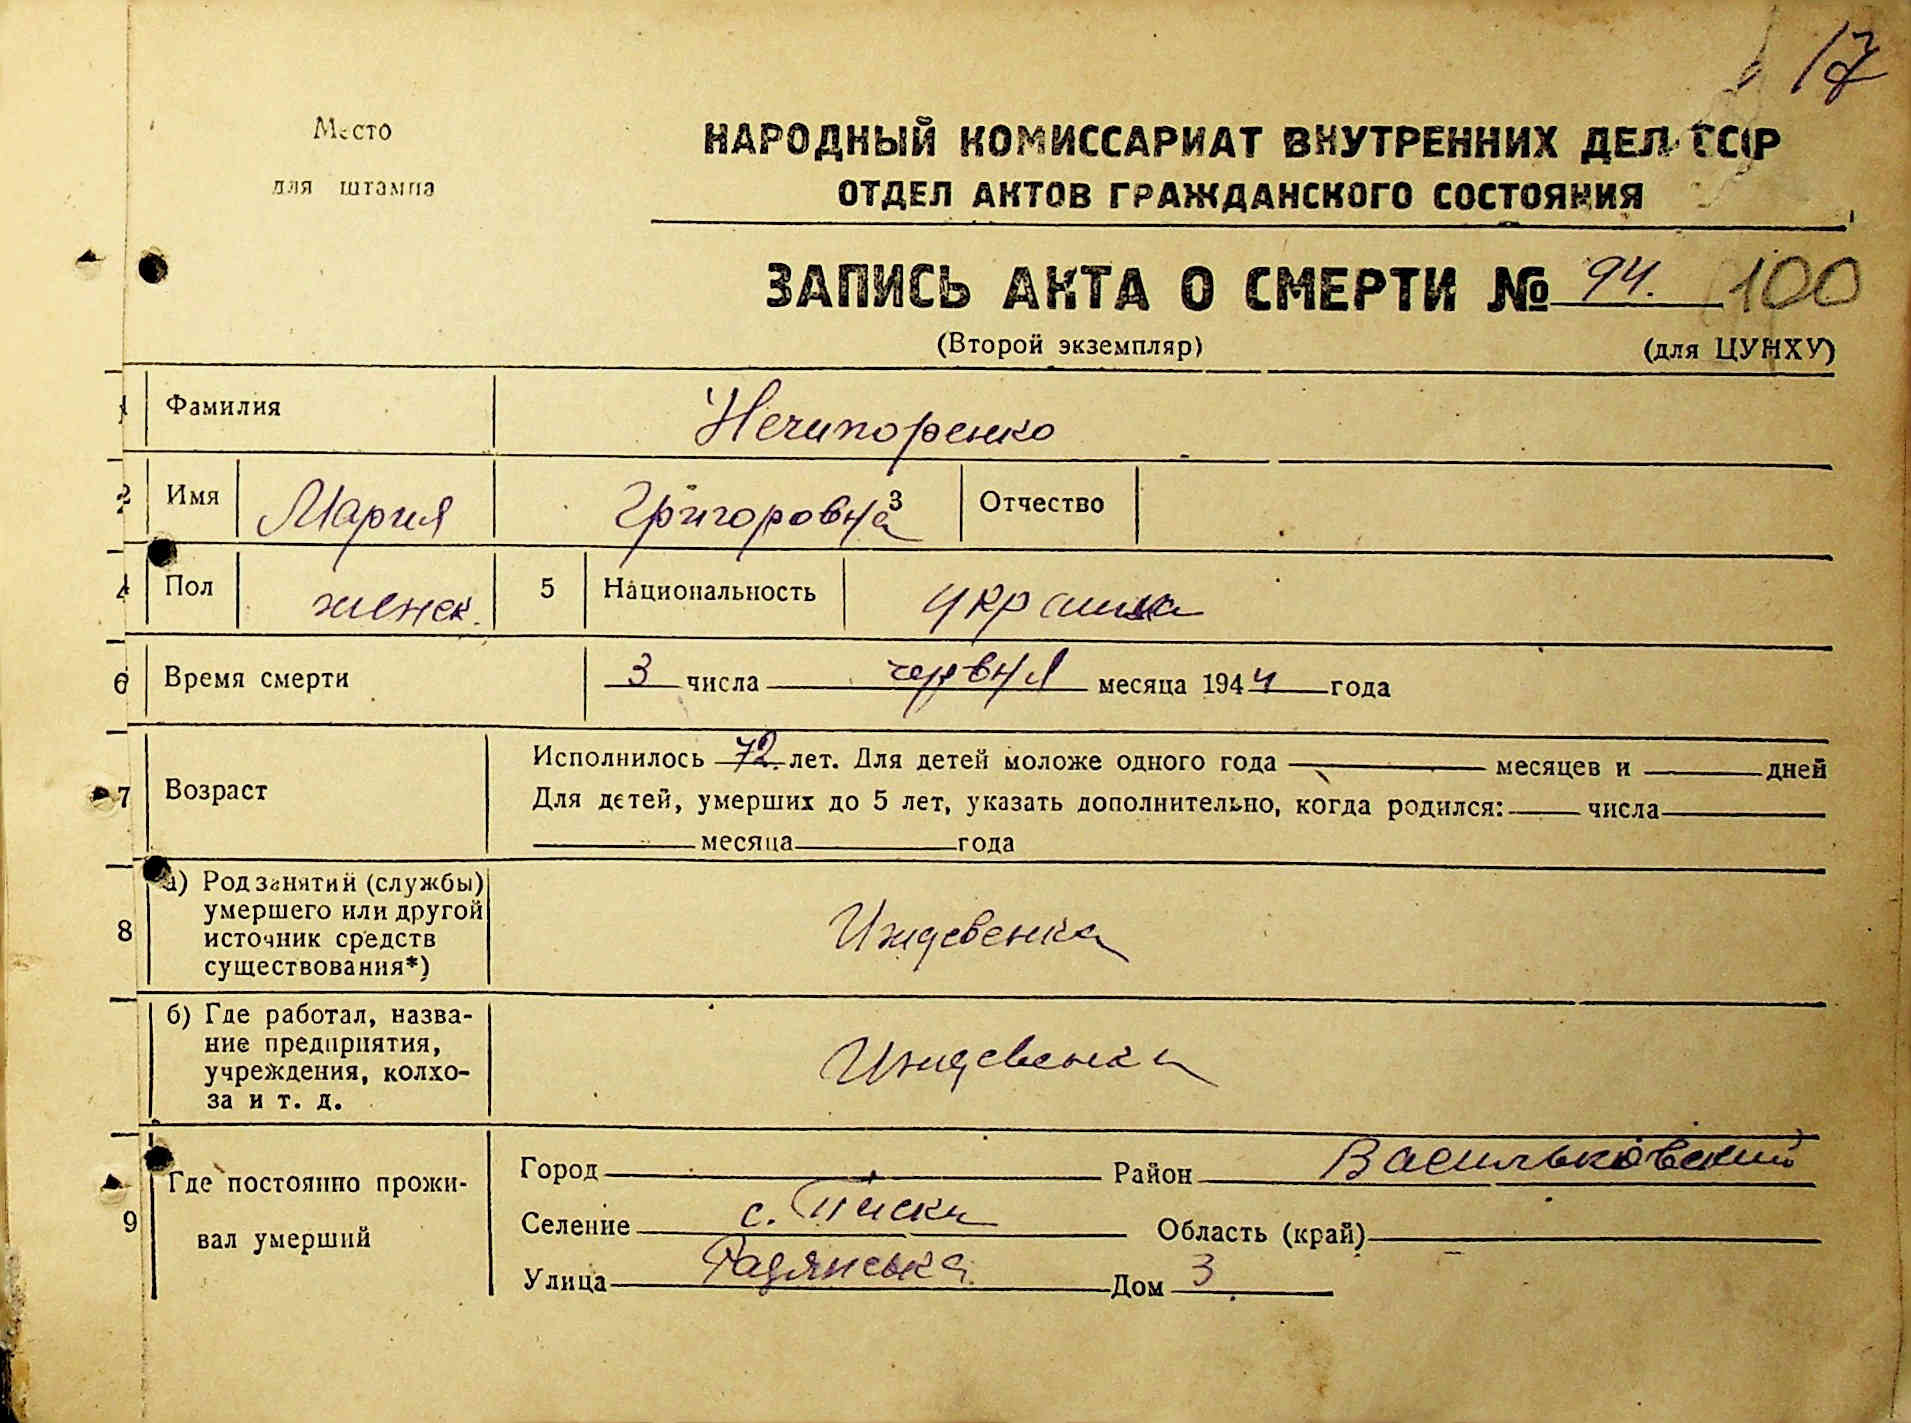 17
Место
для штампа
НАРОДНЫЙ КОМИССАРИАТ ВНУТРЕННИХ ДЕЛ СССР
ОТДЕЛ АКТОВ ГРАЖДАНСКОГО СОСТОЯНИЯ
ЗАПИСЬ АКТА О СМЕРТИ № 94. 100
(Второй экземпляр) (для ЦУНХУ)
1 Фамилия Нечипоренко
2 Имя Мария Григоровна 3 Отчество
4 Пол женск. 5 Национальность украинка
6 Время смерти 3 числа червня месяца 1944 года
7 Возраст Исполнилось 72 лет. Для детей моложе одного года месяцев и дней
Для детей, умерших до 5 лет, указать дополнительно, когда родился: числа
месяца года
8 а) Род занятий (службы)
умершего или другой
источник средств
существования*)
Иждевенка
б) Где работал, назва-
ние предприятия,
учреждения, колхо-
за и т. д.
Иждевенка
9 Где постоянно прожи-
вал умерший
Город Район Васильковский
Селение с. Писки Область (край)
Улица Радянська Дом 3